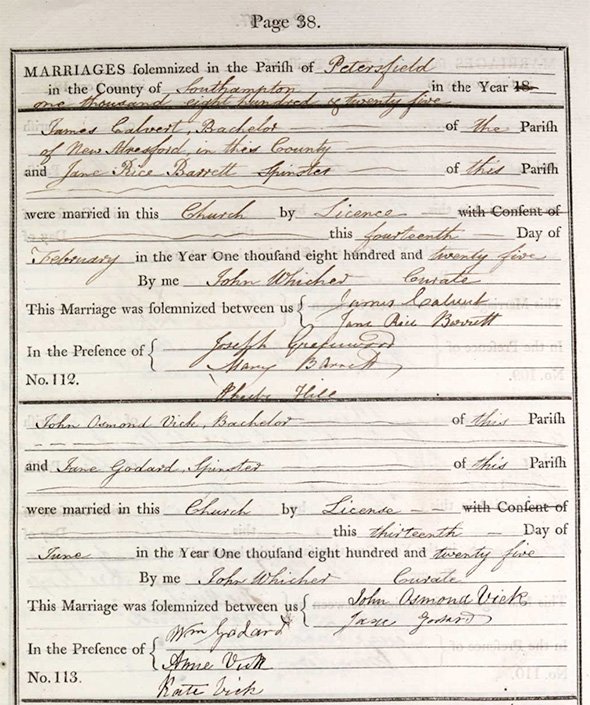 Page 38.
MARRIAGES solemnized in the Parish of Petersfield
in the County of Southampton in the Year 18
one thousand eight hundred & twenty five
James Calvert, Bachelor of the Parish
of New Alresford in this County
and Jane Rice Barrett Spinster of this Parish
were married in this Church by Licence with Consent of
this fourteenth Day of
February in the Year One thousand eight hundred and twenty five
By me John Whicher Curate
This Marriage was solemnized between us { James Calvert
Jane Rice Barrett
In the Presence of { Joseph Greenwood
Mary Barrett
No. 112.
Phebe Hill
John Osmond Vick, Bachelor of this Parish
and Jane Godard, Spinster of this Parish
were married in this Church by License with Consent of
this thirteenth Day of
June in the Year One thousand eight hundred and twenty five
By me John Whicher Curate
This Marriage was solemnized between us { John Osmond Vick
Jane Godard
Wm Godard
In the Presence of { Anne Vick
No. 113. Kate Vick